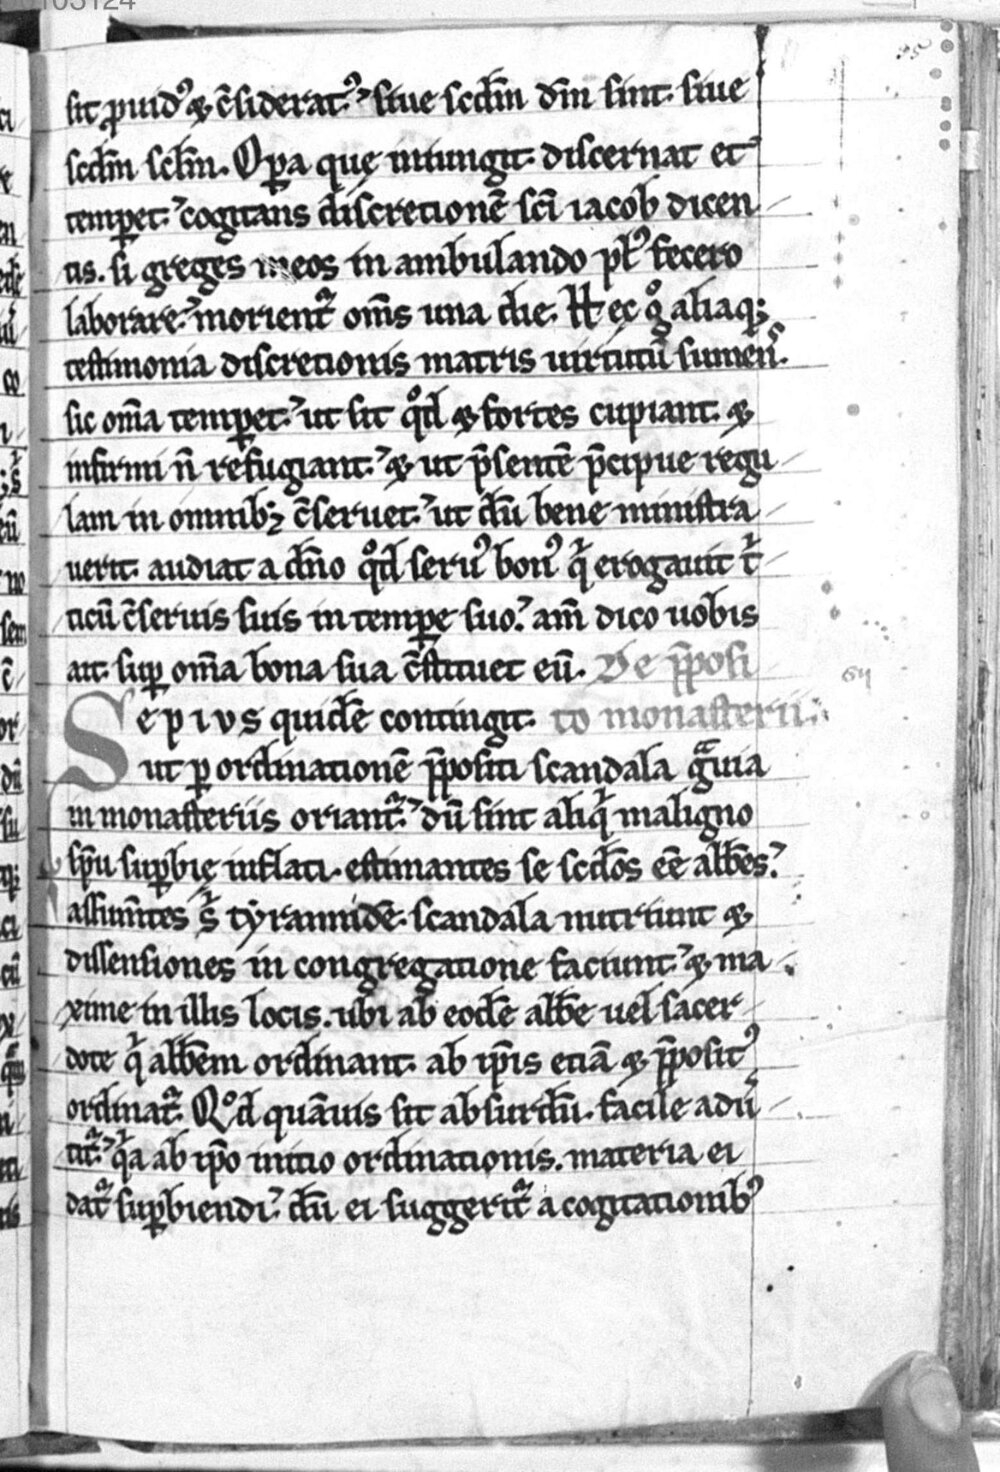 sit ꝓuidꝰ ⁊ c̄siderat᷒ꝰ siue scd̄m dm̄ sint. siue
scd̄m sc̄lm. Oꝑa quę iniungit. discernat et
temꝑet. cogitans discretionē sc̄i iacob dicen
tis. si greges meos in ambulando pl᷒ fecero
laborare. morient᷑ om̄s una die. Hęc g̊ aliaq;
testimonia discretionis matris uirtutū sumens.
sic om̄a temꝑet. ut sit qd̊ ⁊ fortes cupiant. ⁊
infirmi n̄ refugiant. ⁊ ut p̄sentē p̄cipue regu
lam in omnib; c̄seruet. ut dū bene ministra
uerit. audiat a dn̄o qd̊ seruꝰ bonꝰ qͥ erogauit tͥ
ticū c̄seruis suis in temꝑe suo. am̄ dico uobis
ait. suꝑ om̄a bona sua c̄stituet eū. De p̄posi
Sepius quidē contingit. to monasterii.
ut ꝑ ordinationē p̄positi scandala gͣuia
in monasteriis oriant᷑. dū sint aliqͥ maligno
sp̄u suꝑbię inflati. estimantes se scd̄os eē abb̄es.
assum̄tes sͥ tyrannidē. scandala nutriunt ⁊
dissensiones in congregatione faciunt. ⁊ ma
xime in illis locis. ubi ab eodē abb̄e uel sacer
dote qͥ abb̄em ordinant. ab ip̄is etiā ⁊ p̄positꝰ
ordinat᷑. Qd̊ quāuis sit absurdū. facile aduer
tit᷑. qͥa ab ip̄o initio ordinationis. materia ei
dat᷑ suꝑbiendi. dū ei suggerit᷑ a cogitationibꝰ